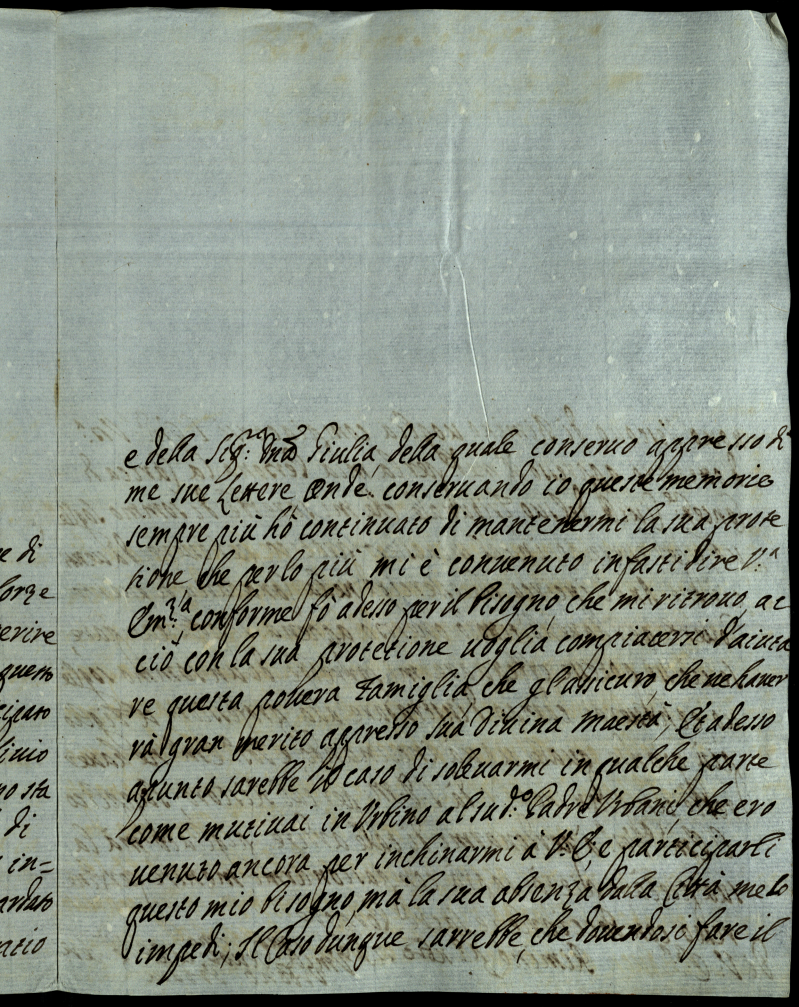 e di
forze
erire
questo
cipato
livio
no sta
di
in=
ardato
atio
e della Sig:ra Dna Giulia, della quale conseruo appresso di
me sue Lettere Onde conseruando io queste memorie
sempre più hò continuato di mantenermi la sua prote
tione che per lo più mi è conuenuto infastidire V.a
Em:za, conforme fò adesso per il bisogno, che mi ritrouo, ac
ciò con la sua protetione uoglia compiacersi d'aiuta
re questa pouera Famiglia, che gl'assicuro, che ne hauer
rà gran merito appresso sua Diuina Maestà; Et adesso
apunto sarebbe il caso di solleuarmi in qualche parte
come mutiuai in Vrbino al sud:o Padre Vrbani, che ero
uenuto ancora per inchinarmi à V. E, e participarli
questo mio bisogno, mà la sua absenza dalla Città me lo
impedì; Il Caso dunque sarrebbe, che douendosi fare il